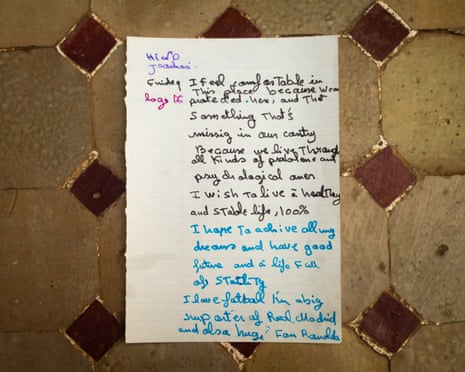 I feel comfortable in
This place because we are
protected here, and That
Something That's
missig in our cantry
Because we live Through
all kinds of problems and
psychological ones
I wish To live a healthy
and stable life, 100%
I hope To achive all my
dreams and have good
futire and a life full
of stability
I love fatball I'm a big
supporter of Real Madrid
and also a huge Fan Ronaldo